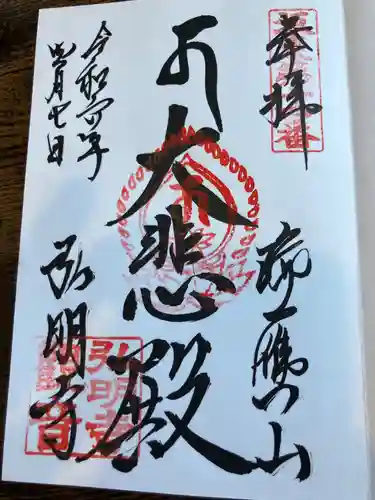 奉拝
瑞應山
大悲殿
令和 年
月七日
弘明寺
弘明寺